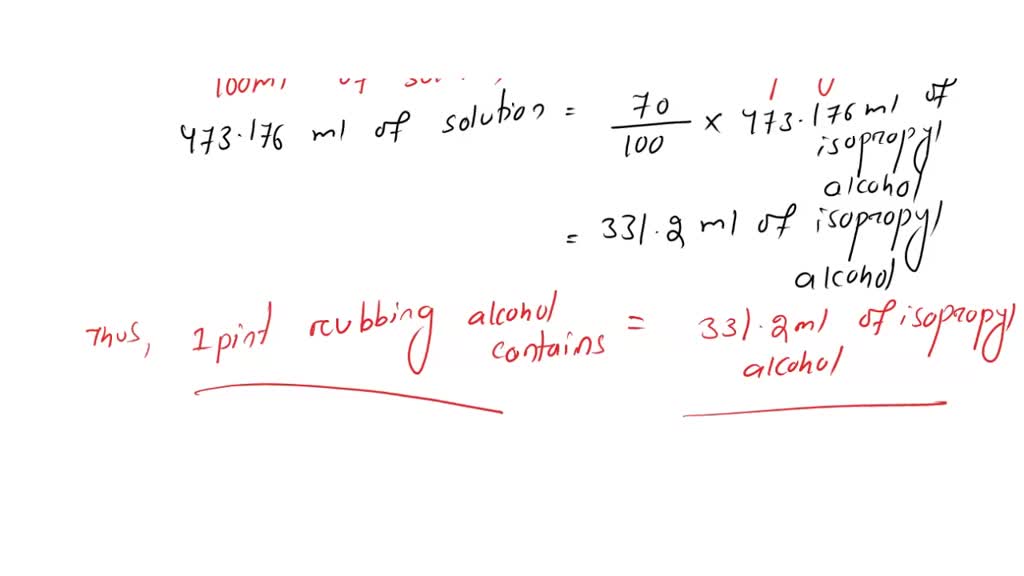 100ml of
473.176 ml of solution = 70/100 × 473.176 ml of
isopropyl
alcohol
= 331.2 ml of isopropyl
alcohol
Thus, 1 pint rubbing alcohol contains = 331.2 ml of isopropyl
alcohol